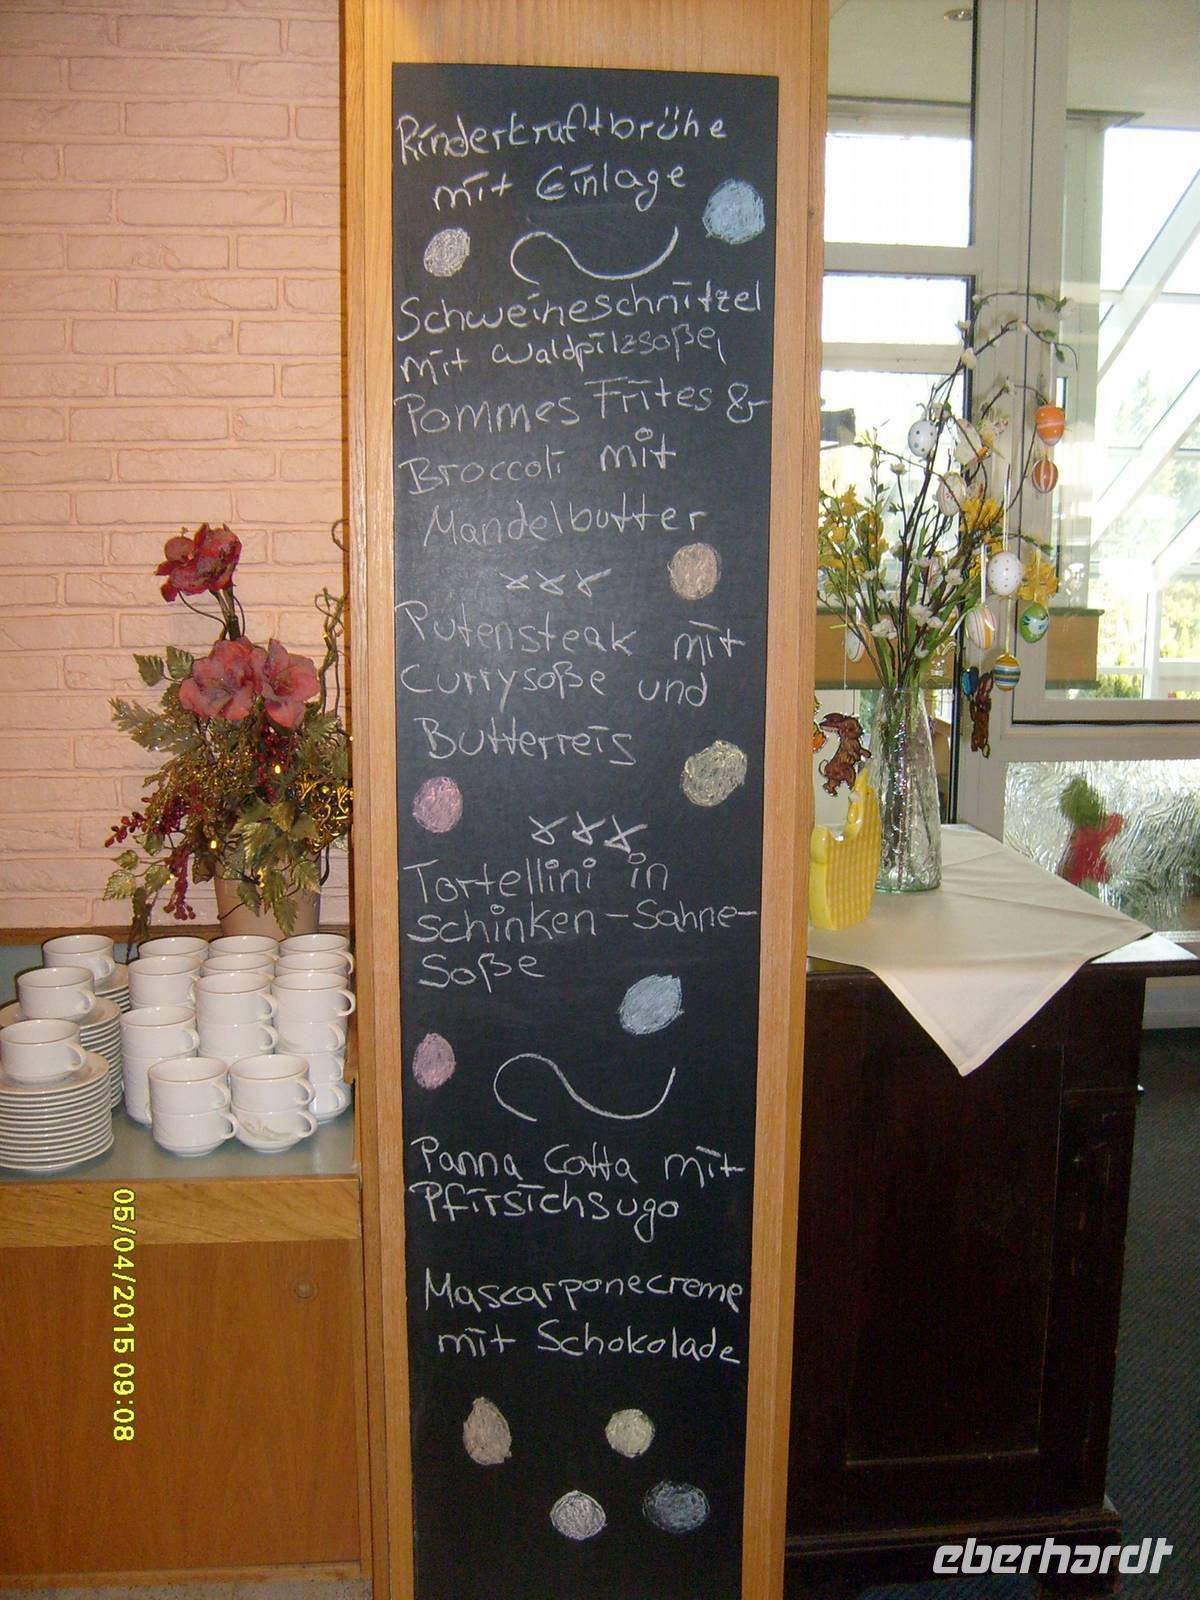 Rinderkraftbrühe
mit Einlage
Schweineschnitzel
mit Waldpilzsoße,
Pommes Frites &
Broccoli mit
Mandelbutter
xxx
Putensteak mit
Currysoße und
Butterreis
xxx
Tortellini in
Schinken-Sahne-
Soße
Panna Cotta mit
Pfirsichsugo
Mascarponecreme
mit Schokolade
05/04/2015 09:08
eberhardt